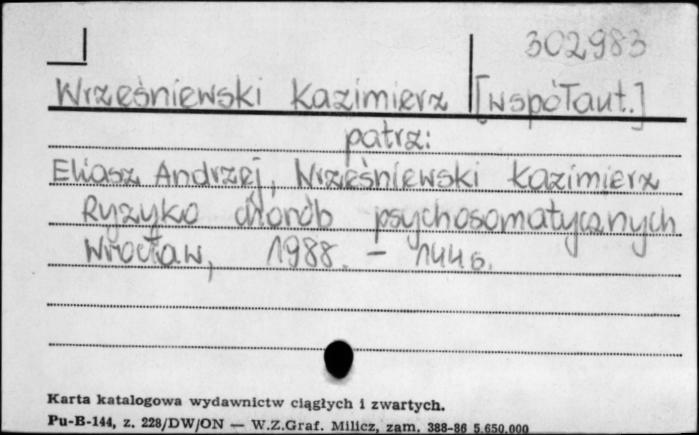 302983
Wrześniewski Kazimierz [współaut.]
patrz:
Eliasz Andrzej, Wrześniewski Kazimierz
Ryzyko chorób psychosomatycznych
Wrocław, 1988. - 144 s.
Karta katalogowa wydawnictw ciągłych i zwartych.
Pu-B-144, z. 228/DW/ON — W.Z.Graf. Milicz, zam. 388-86 5.650.000